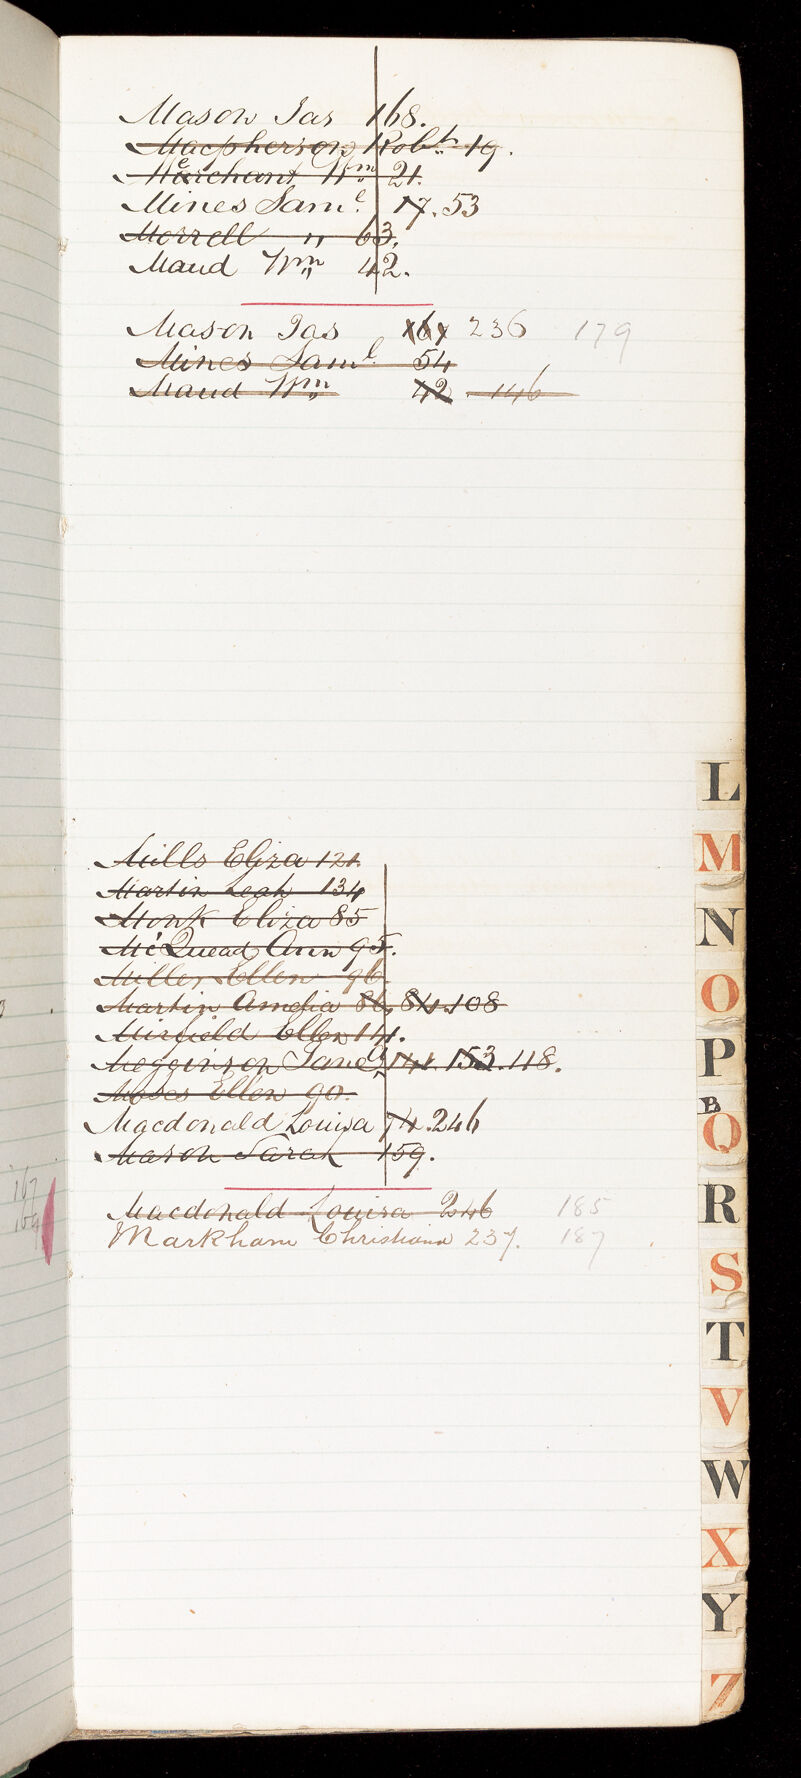 Mason Jas 168.
Macpherson Robt. 19.
Merchant Wm 21.
Mines Saml. 17. 53
Morrell " 63.
Maud Wm 42.
Mason Jas 167 236 179
Mines Saml 54
Maud Wm 42 146
Mills Eliza 121
Martin Leah 134
Monk Eliza 85
McQuead Ann 95.
Miller Ellen 96
Martin Amelia 86, 84. 108
Mirfield Ellen 141.
Megginson Jane 141. 153. 118.
Moses Ellen 90.
Macdonald Louisa 74. 246
Mason Sarah 159.
Macdonald Louisa 246 185
Markham Christiana 237. 187
167
169
L
M
N
O
P
B
Q
R
S
T
V
W
X
Y
Z